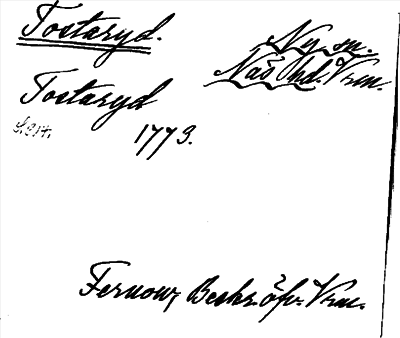 Tostaryd. Ny sn.
Näs hd. Vrm.
Tostaryd
s. 814. 1773.
Fernow, Beskr. öfv. Vrm.